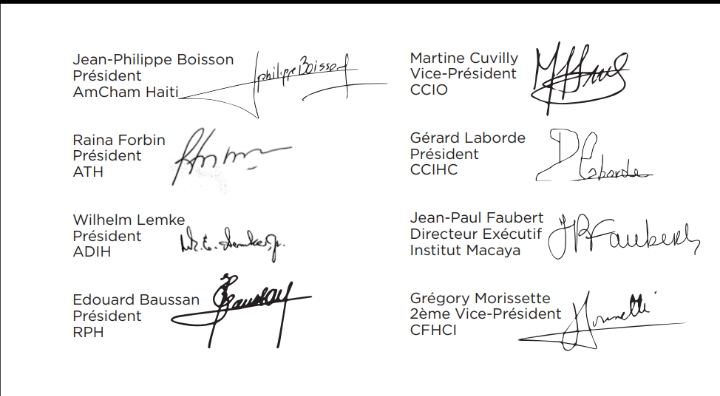 Jean-Philippe Boisson
Président
AmCham Haiti
philippe Boisson
Raina Forbin
Président
ATH
Wilhelm Lemke
Président
ADIH
Edouard Baussan
Président
RPH
Martine Cuvilly
Vice-Président
CCIO
Gérard Laborde
Président
CCIHC
Laborde
Jean-Paul Faubert
Directeur Exécutif
Institut Macaya
JPFaubert
Grégory Morissette
2ème Vice-Président
CFHCI